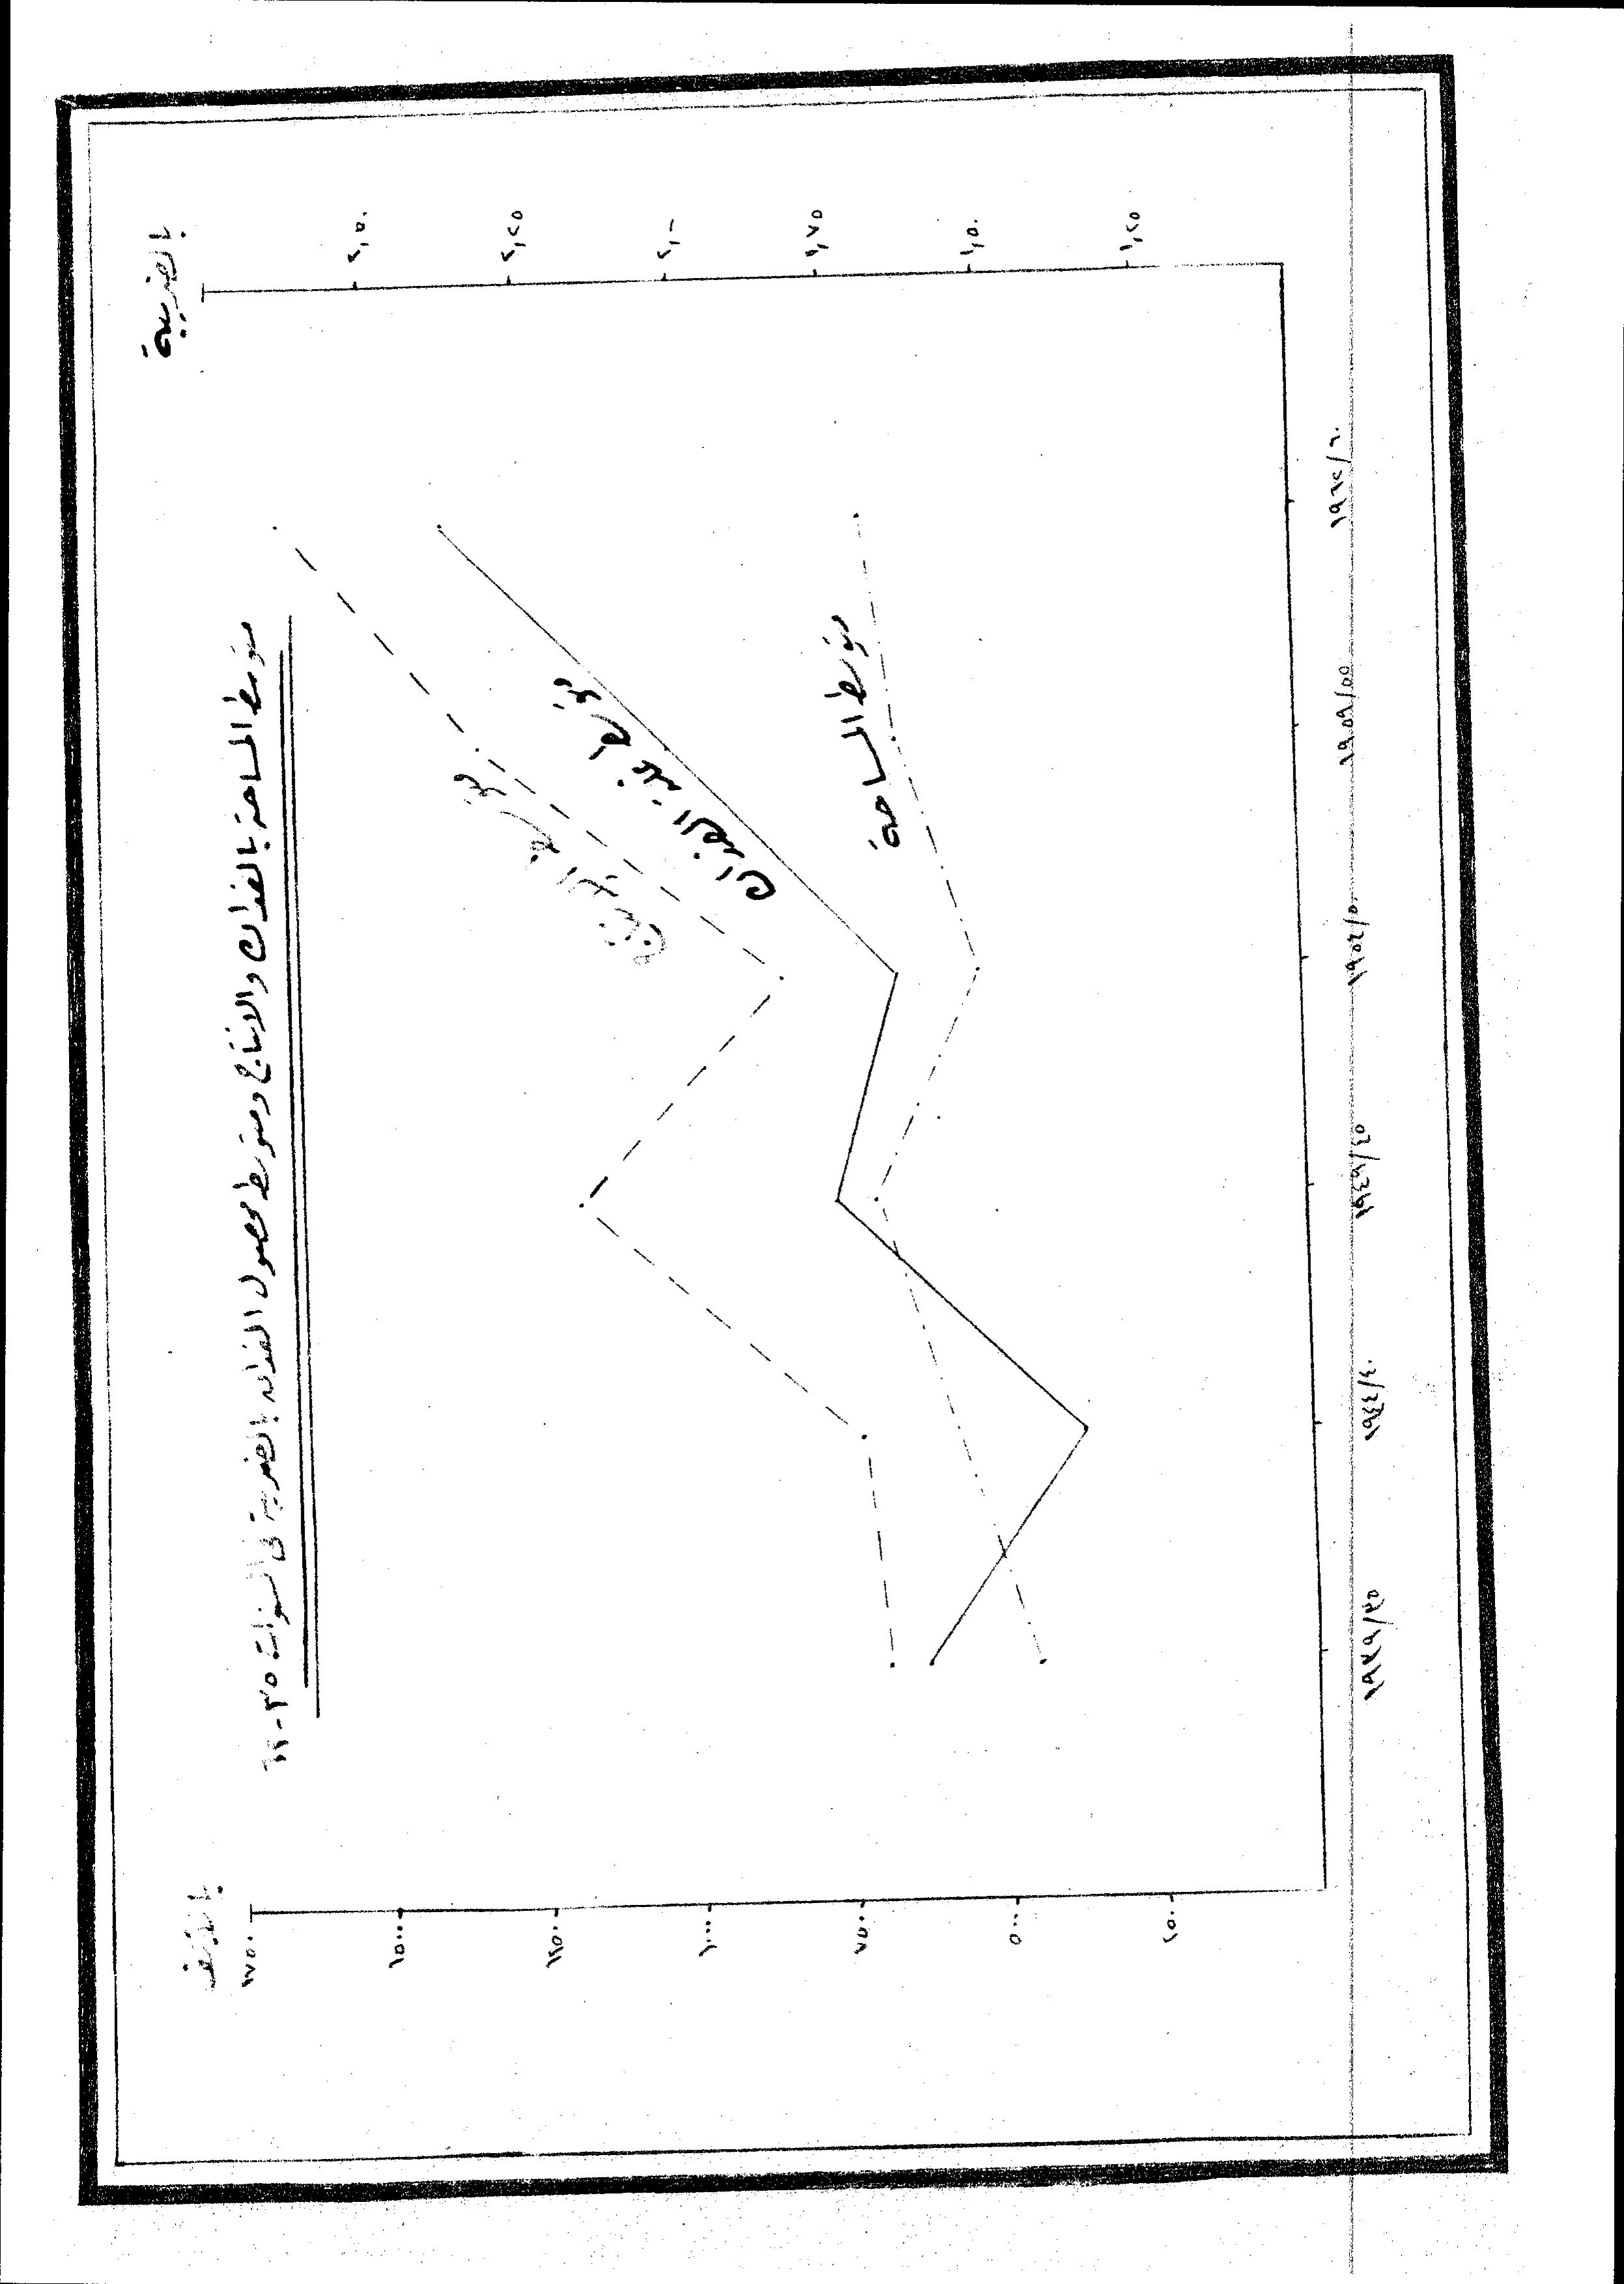 متوسط المساحة بالفدان والانتاج ومتوسط محصول الفدان بالضريبة فى السنوات ٣٥-٦٢
بالألف
بالضريبة
١٧٥٠
١٥٠٠
١٢٥٠
١٠٠٠
٧٥٠
٥٠٠
٢٥٠
٢,٥٠
٢,٢٥
٢,-
١,٧٥
١,٥٠
١,٢٥
متوسط
متوسط غلة الفدان
متوسط المساحة
١٩٣٩/٣٥
١٩٤٤/٤٠
١٩٤٩/٤٥
١٩٥٤/٥٠
١٩٥٩/٥٥
١٩٦٢/٦٠